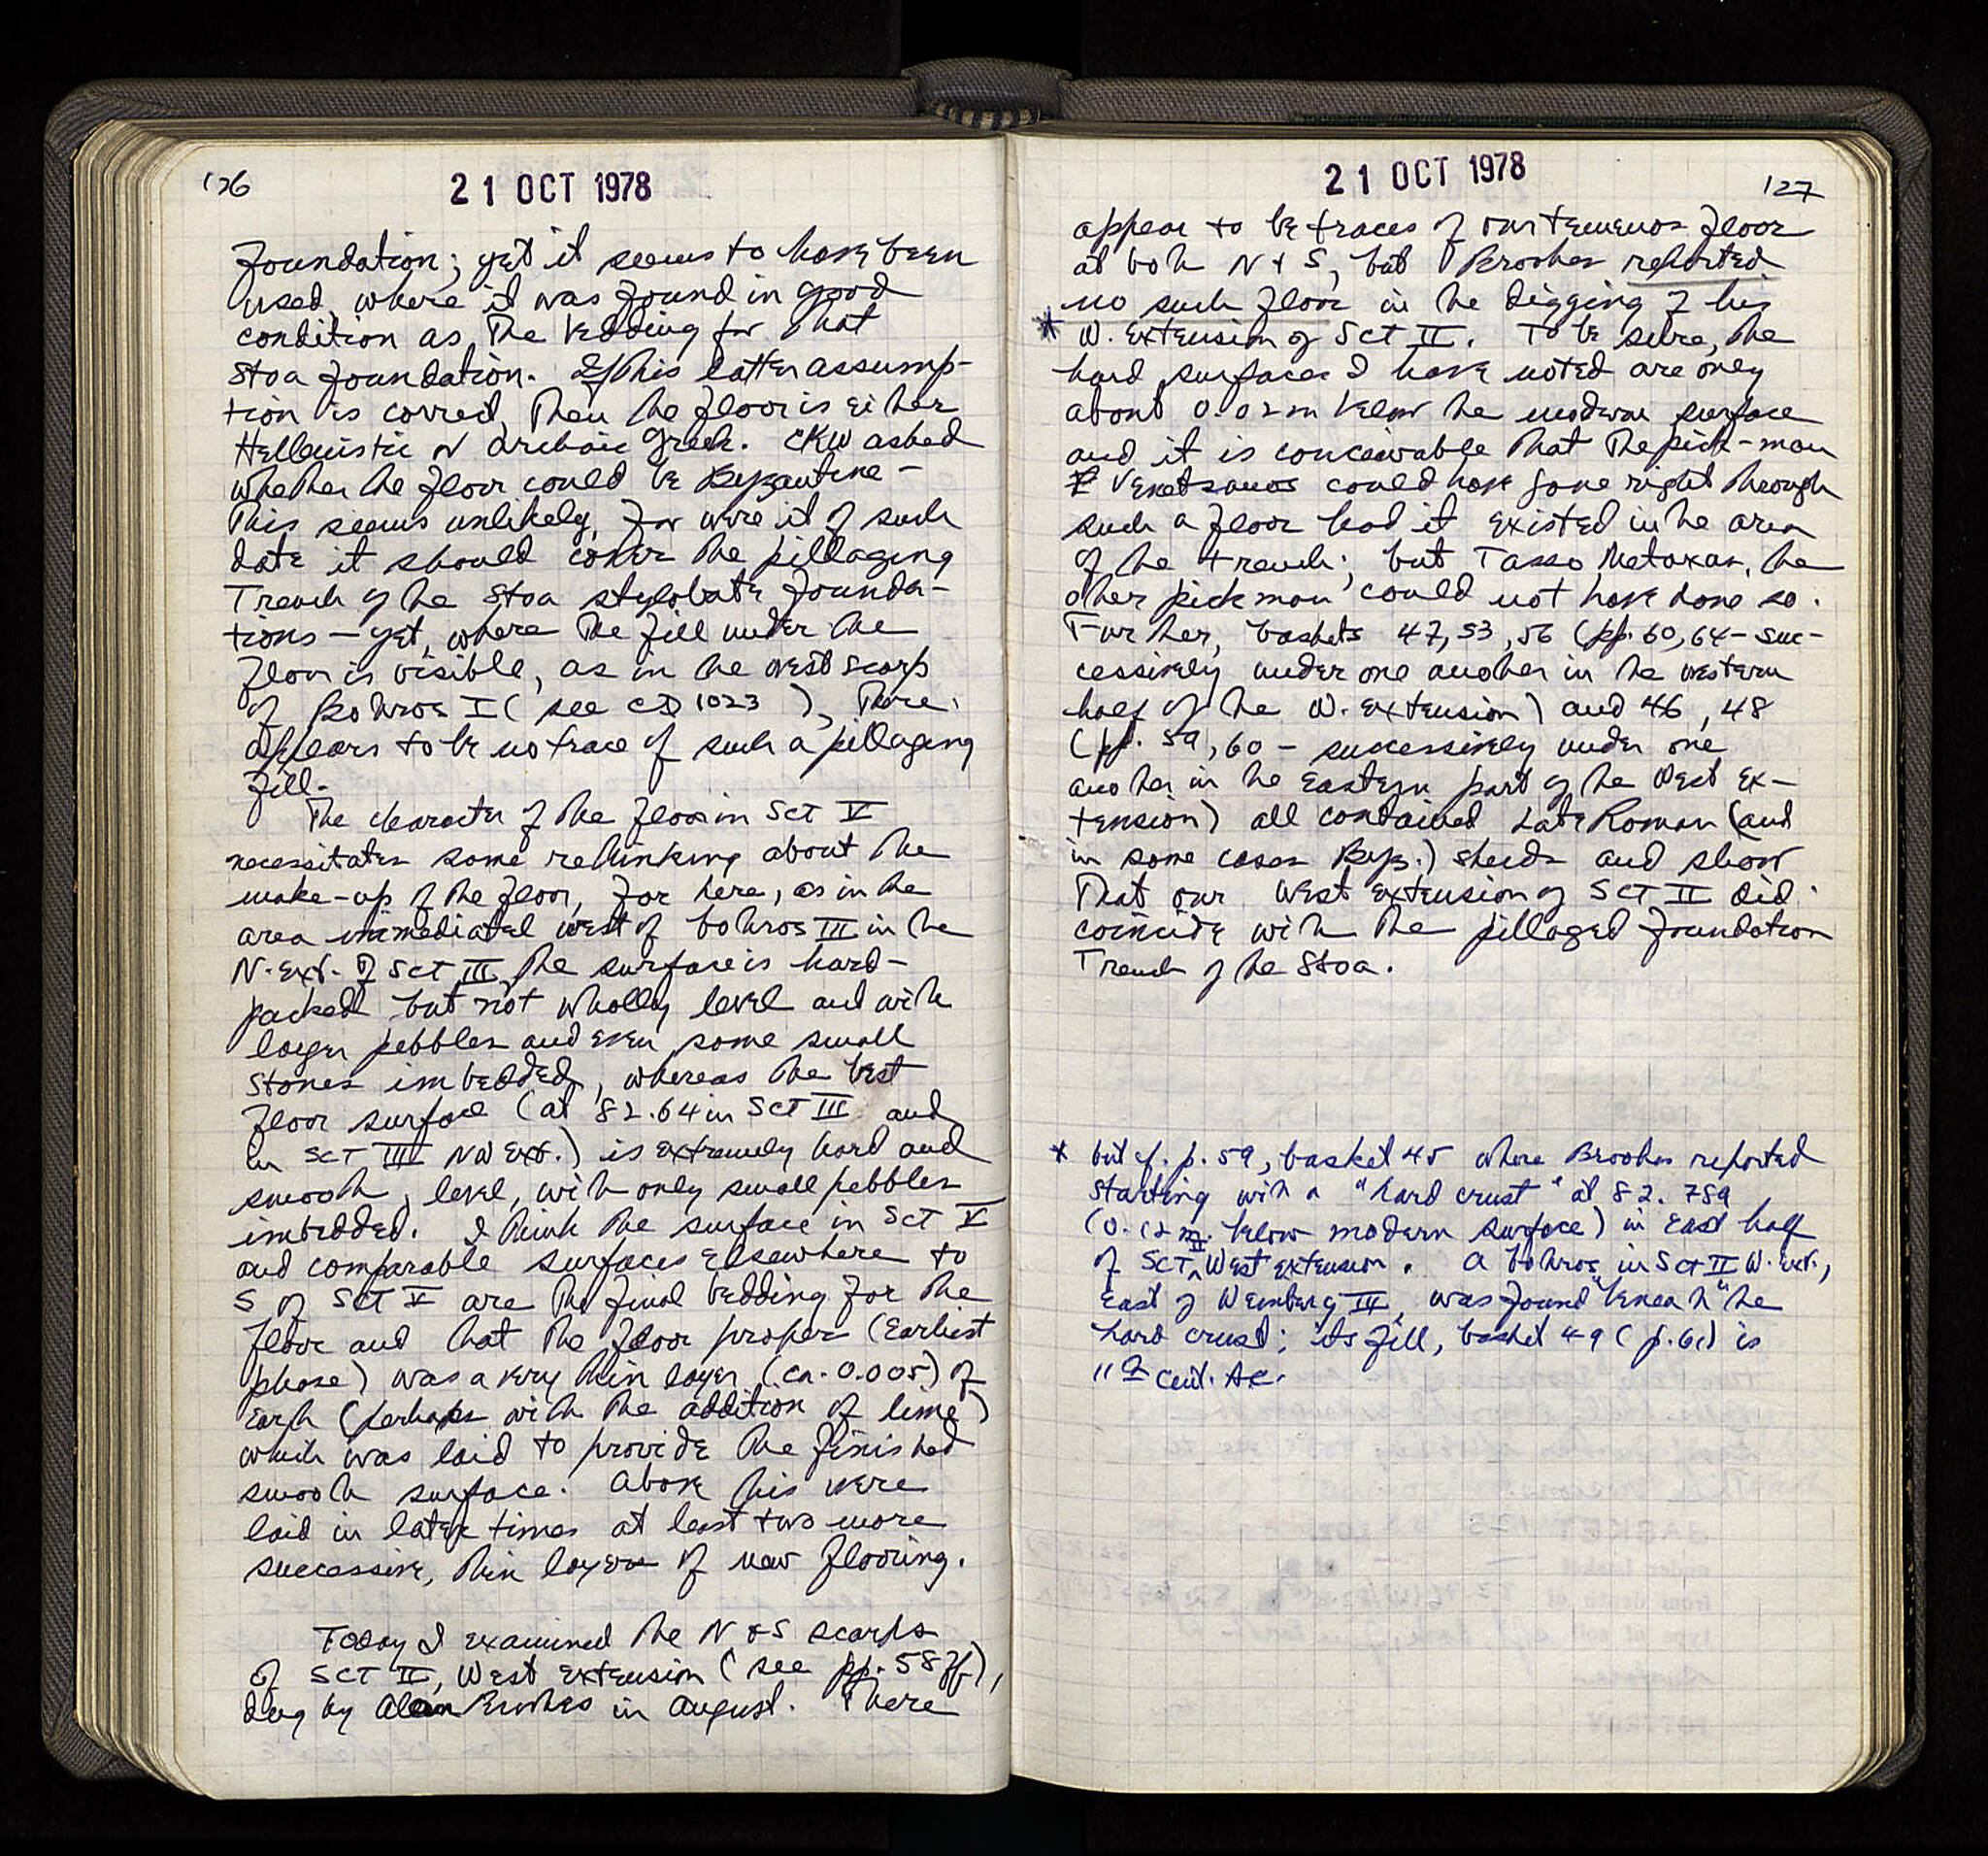 126
21 OCT 1978
foundation; yet it seems to have been
used, where it was found in good
condition as the bedding for that
Stoa foundation. If this latter assump-
tion is correct, then the floor is either
Hellenistic or archaic Greek. CKW asked
whether the floor could be Byzantine -
This seems unlikely, for were it of such
date it should cover the pillaging
Trench of the Stoa stylobate founda-
tions - yet, where the fill under the
floor is visible, as in the west scarp
of Bothros I (see CD 1023 ), there
appears to be no trace of such a pillaging
fill.
The character of the floor in SCT V
necessitates some rethinking about the
make-up of the floor, for here, as in the
area immediatel west of bothros III in the
N. Ext. of SCT III, the surface is hard-
packed but not wholly level and with
larger pebbles and even some small
stones imbedded, whereas the best
floor surface (at 82.64 in SCT III and
in SCT III NW Ext.) is extremely hard and
smooth, level, with only small pebbles
imbedded. I think the surface in SCT V
and comparable surfaces elsewhere to
S of SCT V are the final bedding for the
floor and that the floor proper (earliest
phase) was a very thin layer (ca. 0.005) of
earth (perhaps with the addition of lime)
which was laid to provide the finished
smooth surface. Above this were
laid in later times at least two more
successive, thin layers of new flooring.
Today I examined the N & S scarps
of SCT II, West extension (see pp. 58ff),
dug by Alan Brookes in August. There
21 OCT 1978
127
appear to be traces of our temenos floor
at both N & S, but Brookes reported
no such floor in the digging of his
* W. extension of SCT II. To be sure, the
hard surfaces I have noted are only
about 0.02m below the modern surface
and it is conceivable that the pick-man
P Venetsanos could have gone right through
such a floor had it existed in the area
of the trench; but Tasso Metaxas, the
other pickman could not have done so.
Further, baskets 47, 53, 56 (pp. 60, 64 - suc-
cessively under one another in the western
half of the W. extension) and 46, 48
(pp. 59, 60 - successively under one
another in the eastern part of the West Ex-
tension) all contained Late Roman (and
in some cases Byz.) sherds and show
that our West extension of SCT II did
coincide with the pillaged foundation
Trench of the Stoa.
* but cf. p. 59, basket 45 where Brookes reported
starting with a "hard crust" at 82.789
(0.12 m. below modern surface) in East half
of SCT II West extension. A bothros in SCT II W. Ext.,
east of Weinberg III, was found "beneath" the
hard crust; its fill, basket 49 (p. 61) is
11th cent. AC.